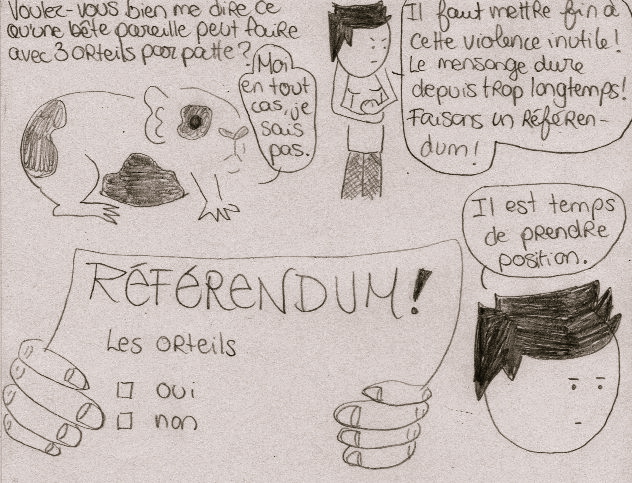 Voulez-vous bien me dire ce
qu'une bête pareille peut faire
avec 3 orteils par patte?
Moi
en tout
cas, je
sais
pas.
Il faut mettre fin à
cette violence inutile!
Le mensonge dure
depuis trop longtemps!
Faisons un Référen-
dum!
Il est temps
de prendre
position.
RÉFÉRENDUM!
Les orteils
oui
non